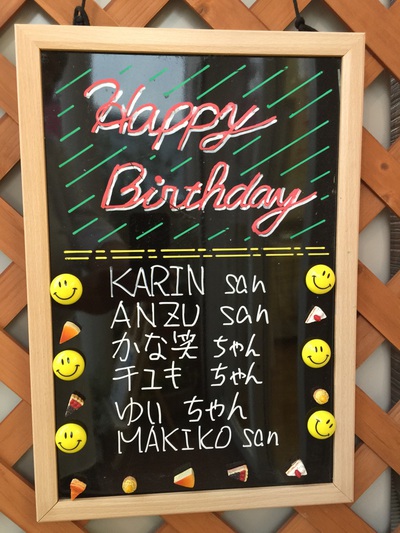 Happy
Birthday
KARIN san
ANZU san
かな笑 ちゃん
チユキ ちゃん
ゆい ちゃん
MAKIKO san